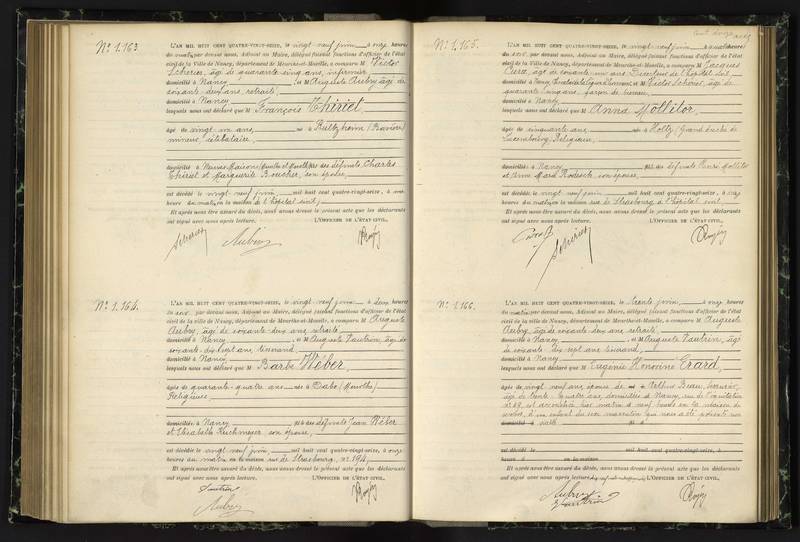 Nº 1.163.
L'AN MIL HUIT CENT QUATRE-VINGT-SEIZE, le vingt-neuf juin à onze heures
du matin, par devant nous, Adjoint au Maire, délégué faisant fonctions d'officier de l'état
civil de la ville de Nancy, département de Meurthe-et-Moselle, a comparu M. Victor
Scherier, âgé de quarante cinq ans, infirmier,
domicilié à Nancy et M. Auguste Aubry, âgé de
soixante-deux ans, retraité,
domicilié à Nancy
lesquels nous ont déclaré que M François Thiriet,
âgé de vingt un ans, né à Rultzheim (Bavière)
mineur, célibataire,
domicilié à Neuves-Maisons (Meurthe et Moselle) fils des défunts Charles
Thiriet et Marguerite Boucher, son épouse,
est décédé le vingt-neuf juin, mil huit cent quatre-vingt-seize, à une
heure du matin, en la maison de l'hôpital civil,
Et après nous être assuré du décès, nous avons dressé le présent acte que les déclarants
ont signé avec nous après lecture. L'OFFICIER DE L'ÉTAT CIVIL,
Aubry
Nº 1.164.
L'AN MIL HUIT CENT QUATRE-VINGT-SEIZE, le vingt-neuf juin à deux heures
du soir, par devant nous, Adjoint au Maire, délégué faisant fonctions d'officier de l'état
civil de la ville de Nancy, département de Meurthe-et-Moselle, a comparu M. Auguste
Aubry, âgé de soixante-deux ans, retraité
domicilié à Nancy, et M. Auguste Vautrin, âgé de
soixante-dix sept ans, tisserand,
domicilié à Nancy
lesquels nous ont déclaré que M Barbe Wéber,
âgée de quarante-quatre ans née à Dabo (Meurthe)
Religieuse,
domiciliée à Nancy, fille des défunts Jean Wéber
et Elisabeth Kuchmeyer, son épouse,
est décédée le vingt neuf juin, mil huit cent quatre-vingt-seize, à onze
heures du matin, en la maison rue de Strasbourg, nº 194,
Et après nous être assuré du décès, nous avons dressé le présent acte que les déclarants
ont signé avec nous après lecture. L'OFFICIER DE L'ÉTAT CIVIL,
Vautrin
Aubry
Nº 1.165.
L'AN MIL HUIT CENT QUATRE-VINGT-SEIZE, le vingt-neuf juin, à quatre heures
du soir, par devant nous, Adjoint au Maire, délégué faisant fonctions d'officier de l'état
civil de la ville de Nancy, département de Meurthe-et-Moselle, a comparu M. Jacques
âgé de soixante-un ans, Directeur de l'hôpital civil
domicilié à Nancy, et M. Victor Schérier, âgé de
quarante cinq ans, garçon de bureau,
domicilié à Nancy
lesquels nous ont déclaré que M Anna Mollitor,
âgée de cinquante ans, née à Holtz (Grand duché de
Luxembourg), Religieuse,
domiciliée à Nancy fille des défunts Pierre Mollitor
et Anne Marie Rodesch, son épouse,
est décédée le vingt-neuf juin mil huit cent quatre-vingt-seize, à onze
heures du matin, en la maison rue de Strasbourg à l'hôpital civil
Et après nous être assuré du décès, nous avons dressé le présent acte que les déclarants
ont signé avec nous après lecture. L'OFFICIER DE L'ÉTAT CIVIL,
Nº 1.166.
L'AN MIL HUIT CENT QUATRE-VINGT-SEIZE, le trente juin, à onze heures
du matin, par devant nous, Adjoint au Maire, délégué faisant fonctions d'officier de l'état
civil de la ville de Nancy, département de Meurthe-et-Moselle, a comparu M. Auguste
Aubry, âgé de soixante deux ans, retraité,
domicilié à Nancy et M. Auguste Vautrin, âgé
de soixante dix sept ans, tisserand,
domicilié à Nancy
lesquels nous ont déclaré que M Eugénie Honorine Erard,
âgée de vingt neuf ans, épouse de Arthur Beau, serrurier,
âgé de trente quatre ans, domiciliés à Nancy, rue de
nº est accouchée, hier matin à neuf heures en la maison de
d'un enfant du sexe masculin qui nous a été présenté sans
domicilié à vie
est décédé le mil huit cent quatre-vingt-seize, à
heure d en la maison
Et après nous être assuré du décès, nous avons dressé le présent acte que les déclarants
ont signé avec nous après lecture. L'OFFICIER DE L'ÉTAT CIVIL,
Aubry
Vautrin